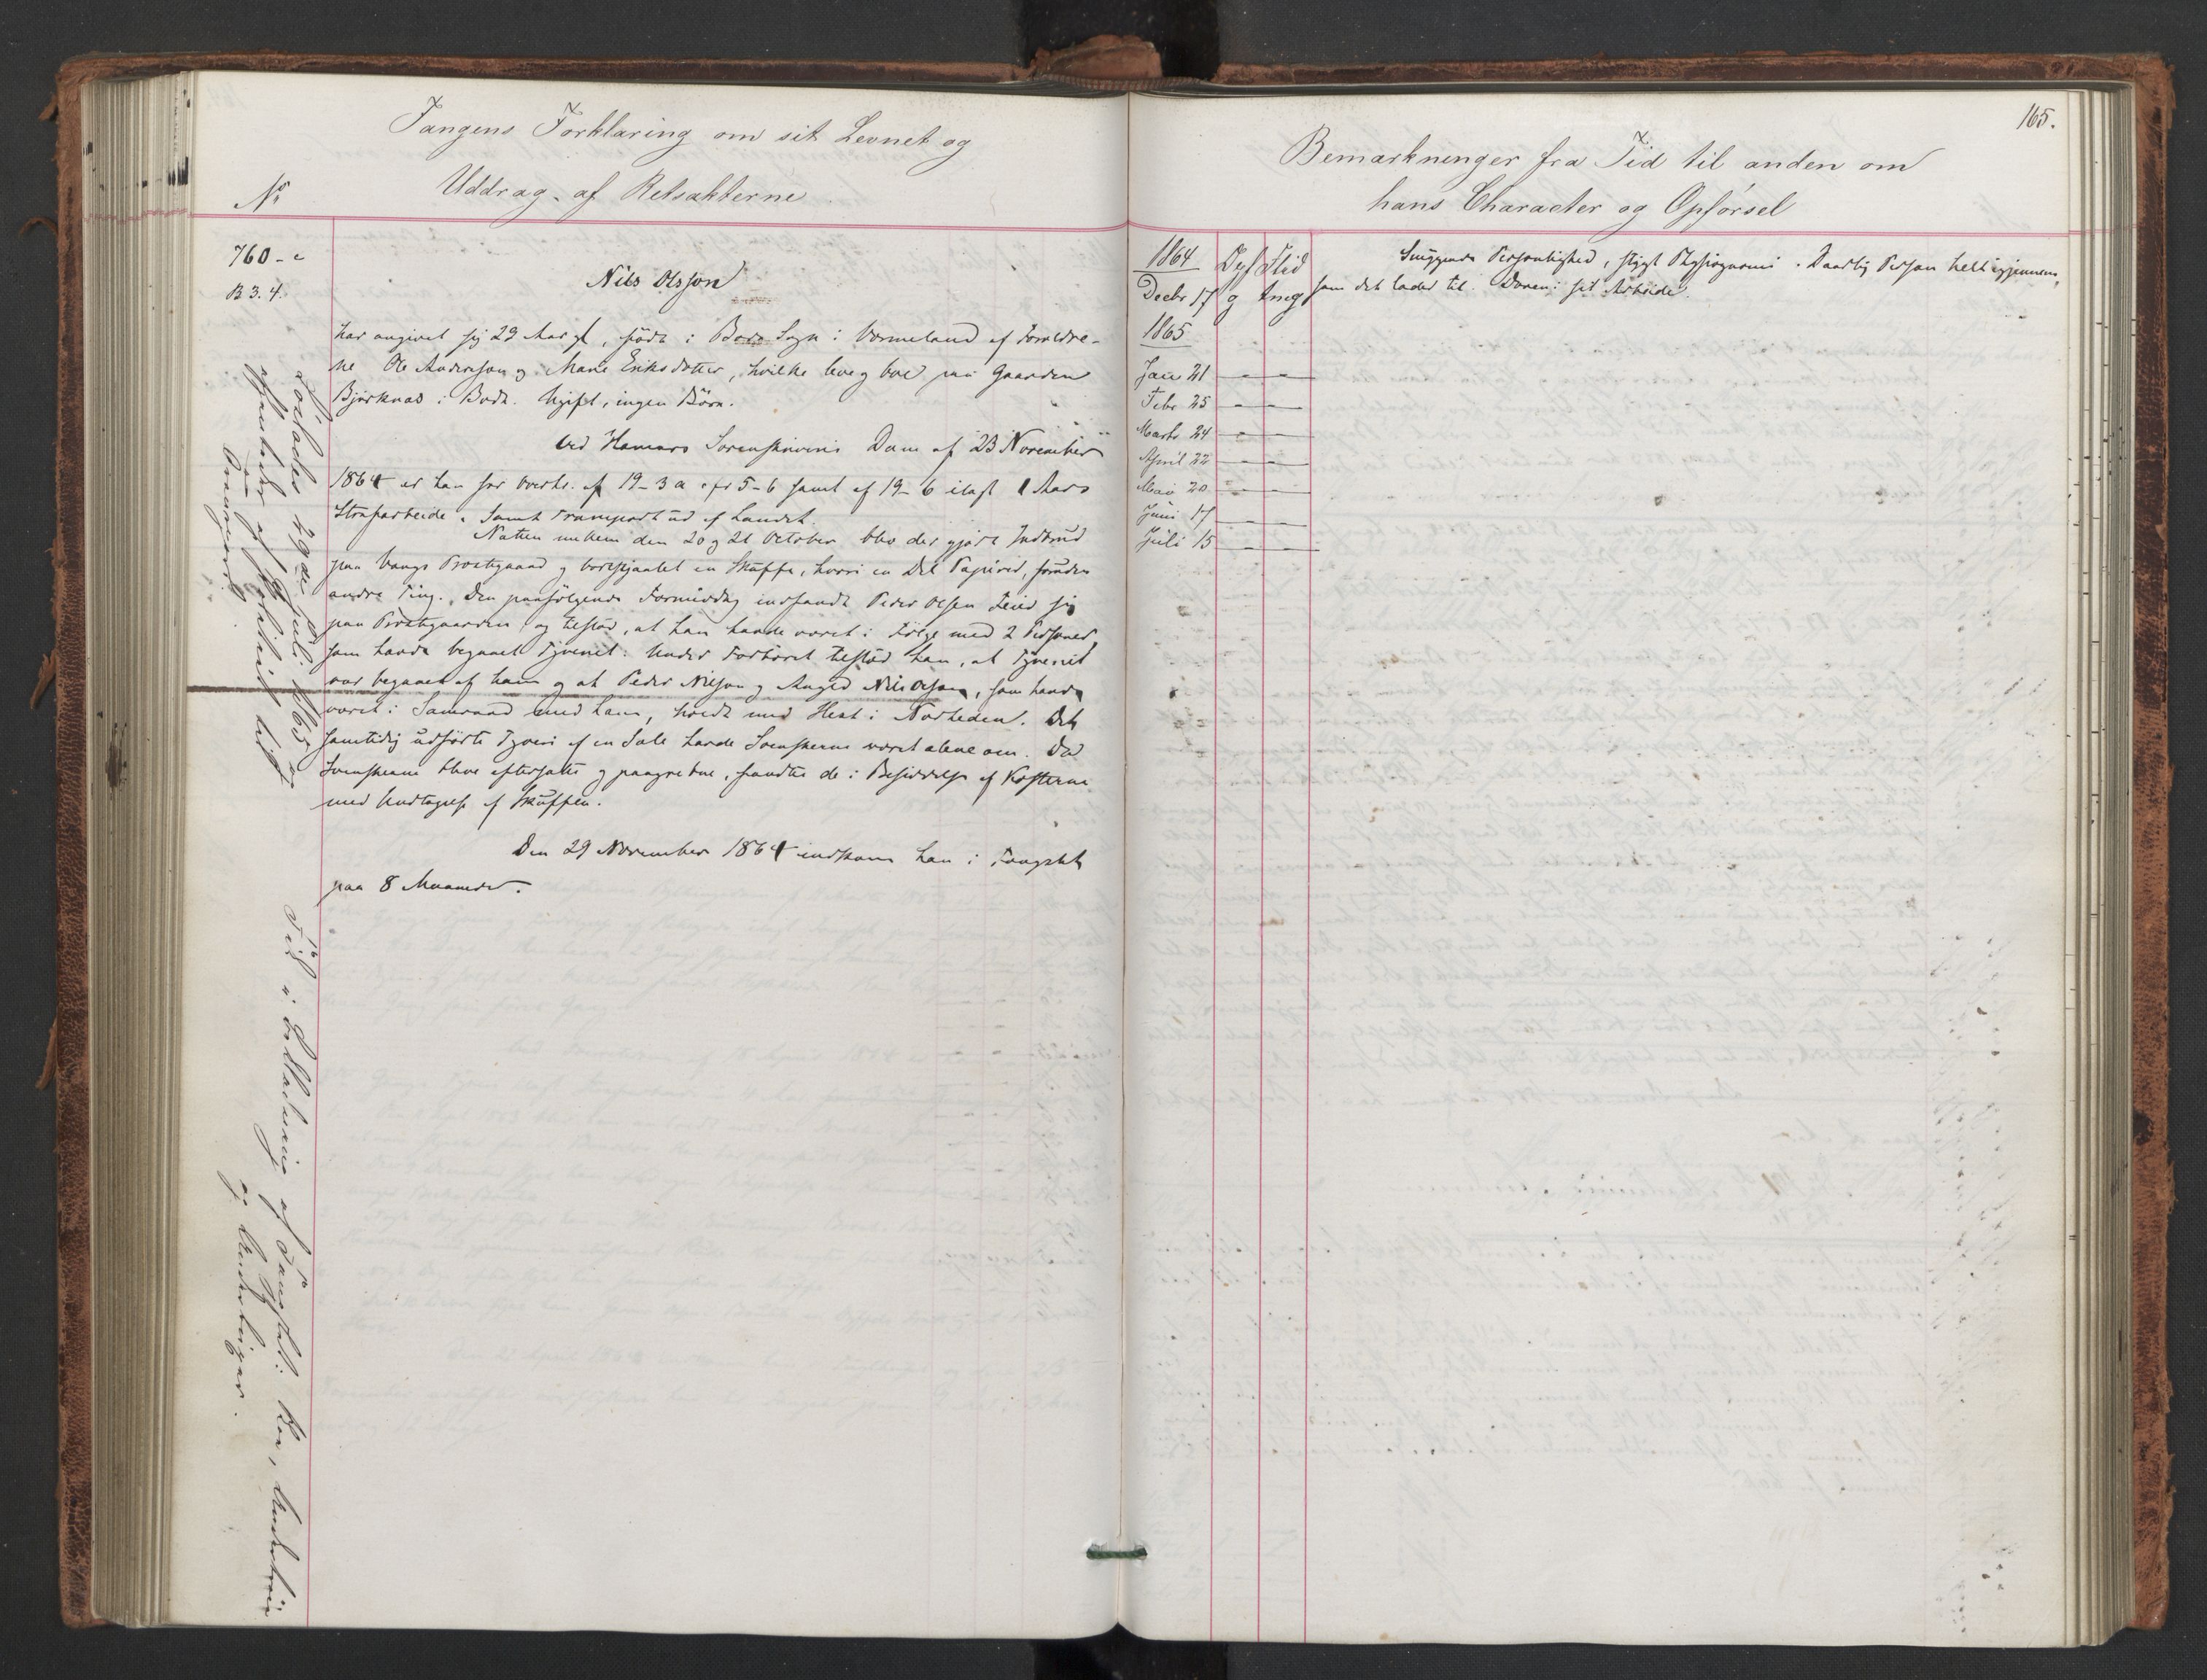 Fangens Forklaring om sit Levnet og
Uddrag af Retsakterne
No
760 - c
B 3. 4.
Nils Olsson
har angivet sig 29 Aar gl, født i Boda Sogn i Vermeland af Foreldre-
ne Ole Andersson og Marie Eriksdotter, hvilke leve og boe paa Gaarden
Björknas i Boda. Ugift, ingen Börn.
Ved Hamars Sorenskriveris Dom af 23 November
1864 er han for Overtr. af 19-3a cfr 5-6 samt af 19-6 ilagt 1 Aars
Strafarbeide, samt Transport ud af Landet.
Natten mellem den 20 og 21 October blev der gjort Indbrud
paa Vangs Prostegaard og bortstjaalet en Skuffe, hvori en Del Papirer, foruden
andre Ting. Den paafølgende Formiddag indfandt Peder Olsen Feier sig
paa Prostegaarden, og tilstod, at han havde været i Følge med 2 Personer,
som havde begaaet Tyveriet. Under Forhøret tilstod han, at Tyveriet
var begaaet af ham og at Peder Nilsson og Nils Olsson, som havde
været i Samraad med ham, holdt med Hest i Nærheden. Det
samtidig udførte Tyveri af en Sale havde Svenskerne været alene om. Da
Svenskerne bleve eftersatte og paagrebne, fandtes de i Besiddelse af Kosterne
med Undtagelse af Skuffen.
Den 29 November 1864 indkom han i Fangstet
paa 8 Maaneder.
Losladt 29de Juli 1865 og
afsendt af Politiet til
Kongsvinger.
Fik i Udladning af Fangstet: Koe, Undertrøie
og Underbuxer.
165.
Bemærkninger fra Tid til anden om
hans Character og Opførsel
1864 Opf Flid
Decbr 17 g tmg
1865
Jan 21 - -
Febr 25 - -
Marts 24 - -
April 22 - -
Mai 20 - -
Juni 17 - -
Juli 15 - -
Personlighed, stygt Physiognomi. Daarlig Person helt igjennem,
som det lader til. Doven i sit Arbeide.